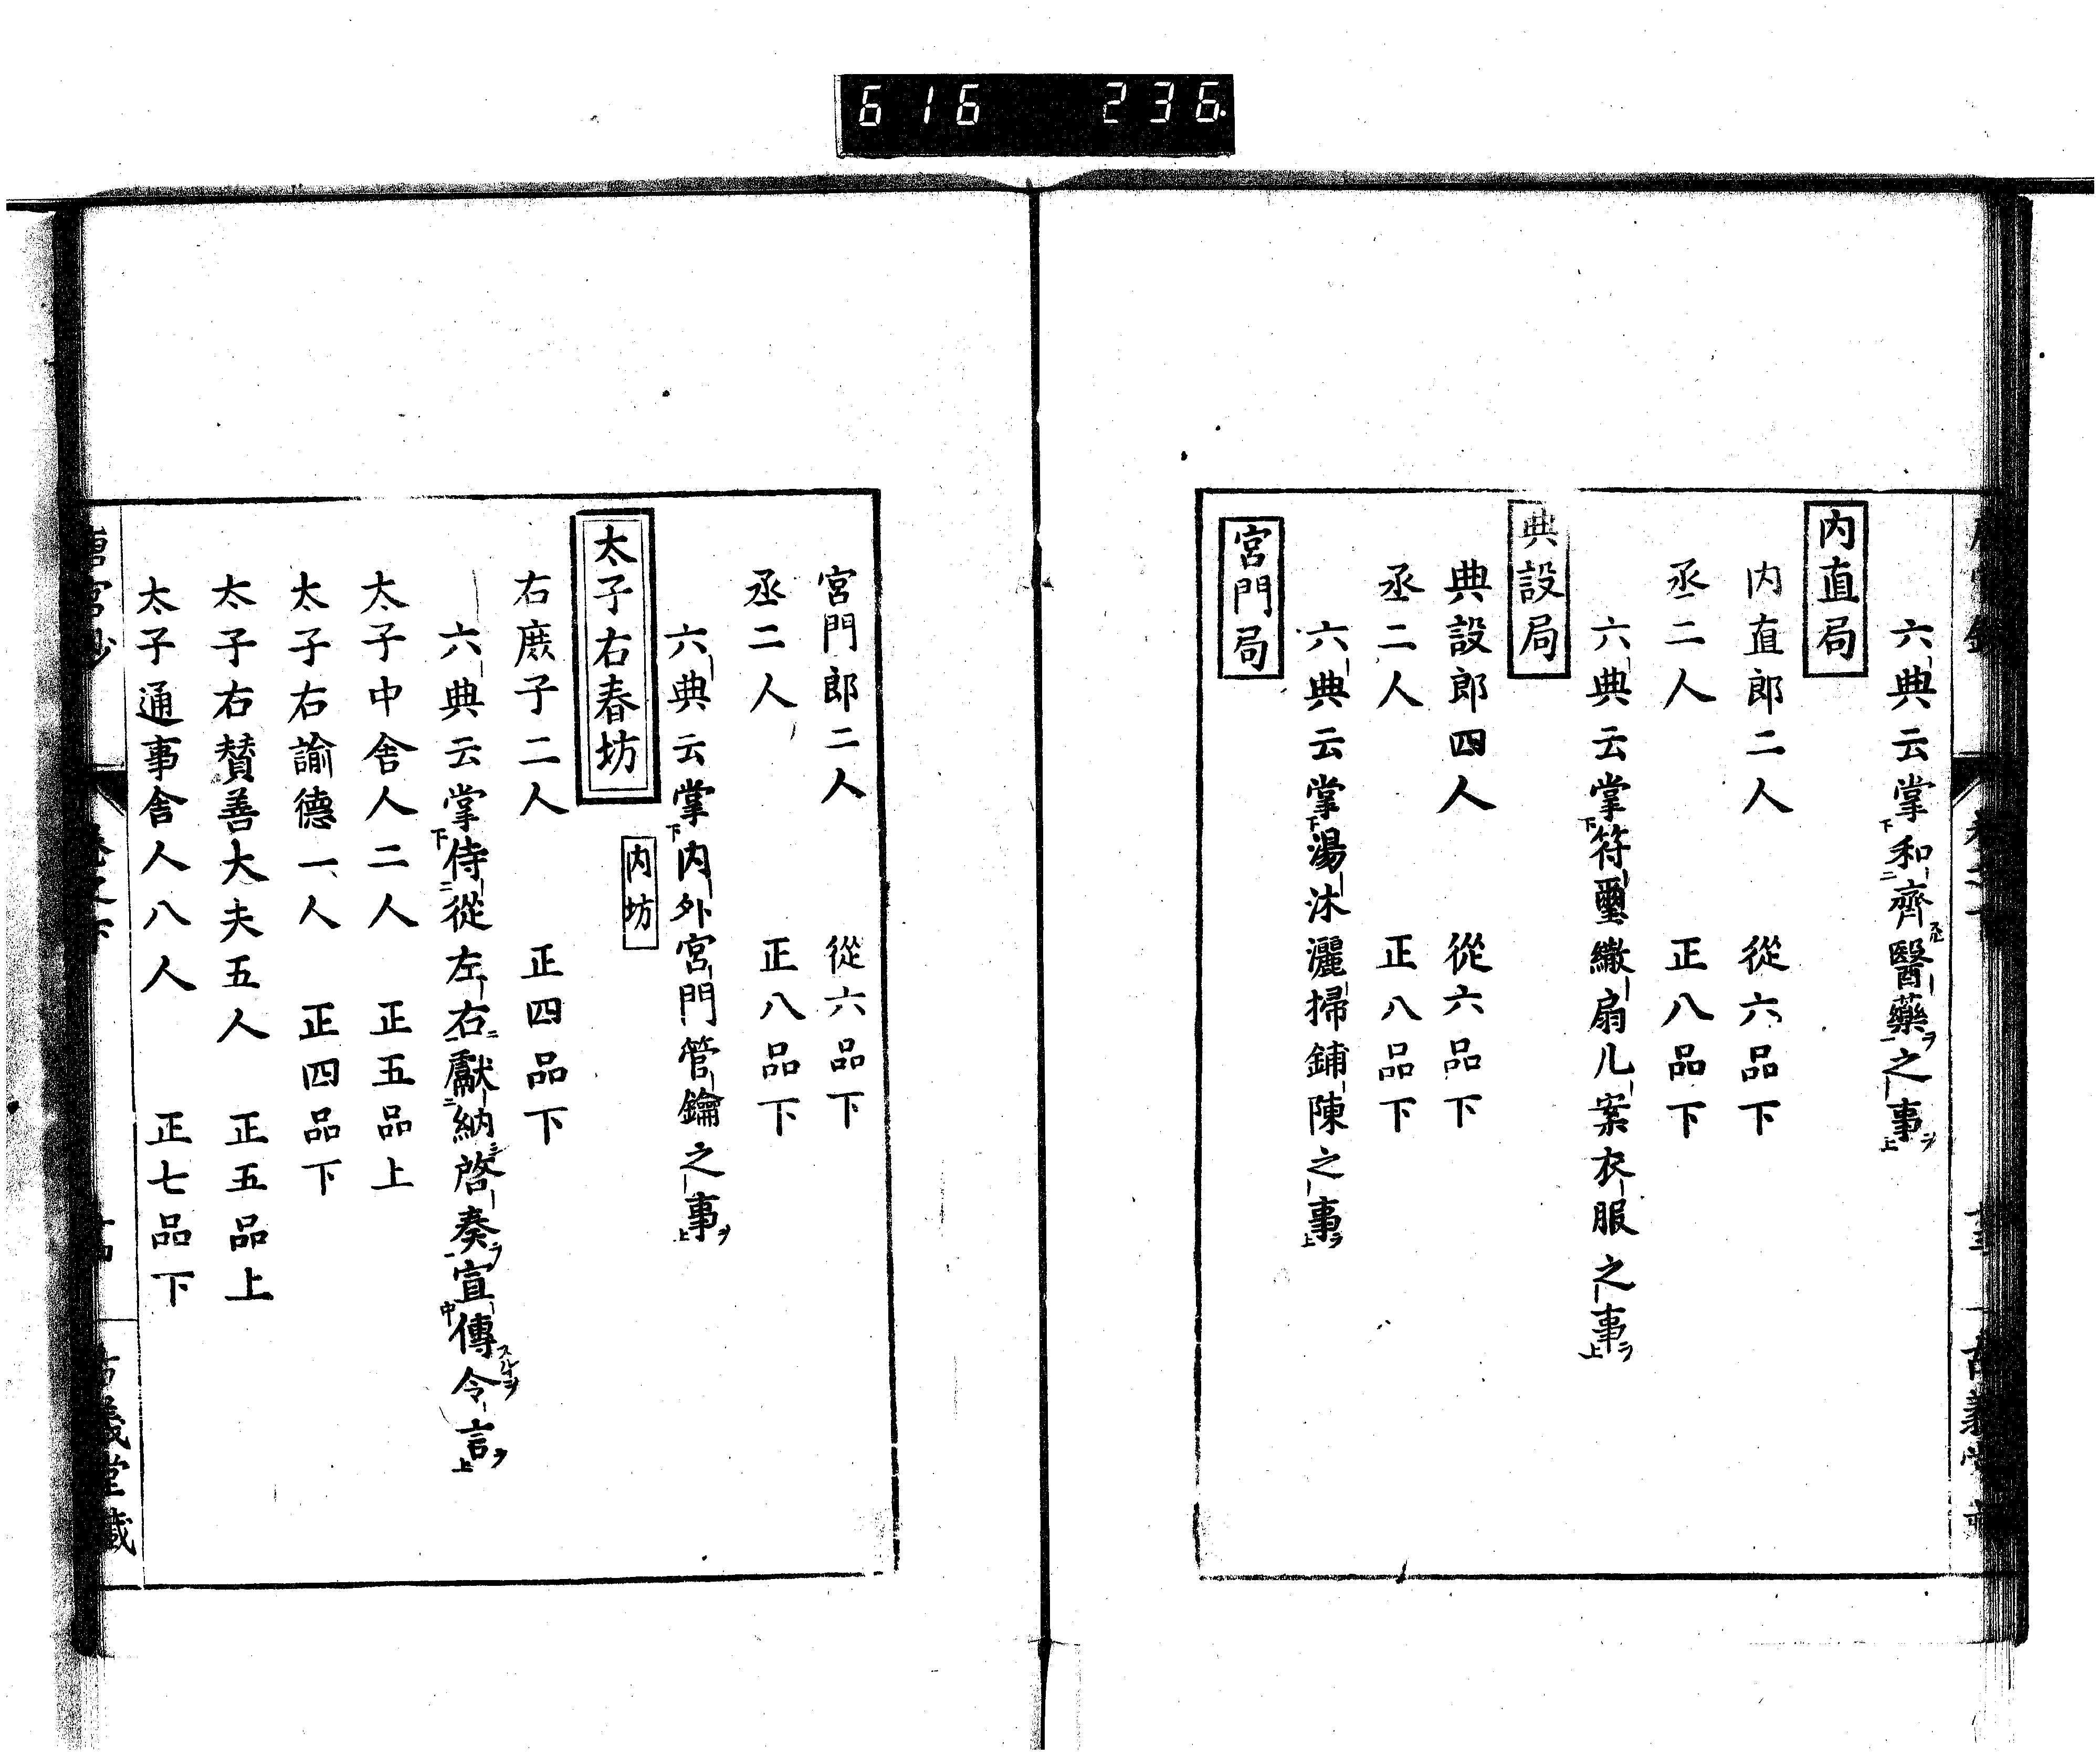 616 236
六典云掌和齊醫藥之事
内直局
内直郎二人 從六品下
丞二人 正八品下
六典云掌符璽繖扇几案衣服之事
典設局
典設郎四人 從六品下
丞二人 正八品下
六典云掌湯沐灑掃鋪陳之事
宮門局
宮門郎二人 從六品下
丞二人 正八品下
六典云掌内外宮門管鑰之事
太子右春坊 内坊
右庶子二人 正四品下
六典云掌侍從左右獻納啓奏宣傳令言
太子中舍人二人 正五品上
太子右諭德一人 正四品下
太子右賛善大夫五人 正五品上
太子通事舍人八人 正七品下